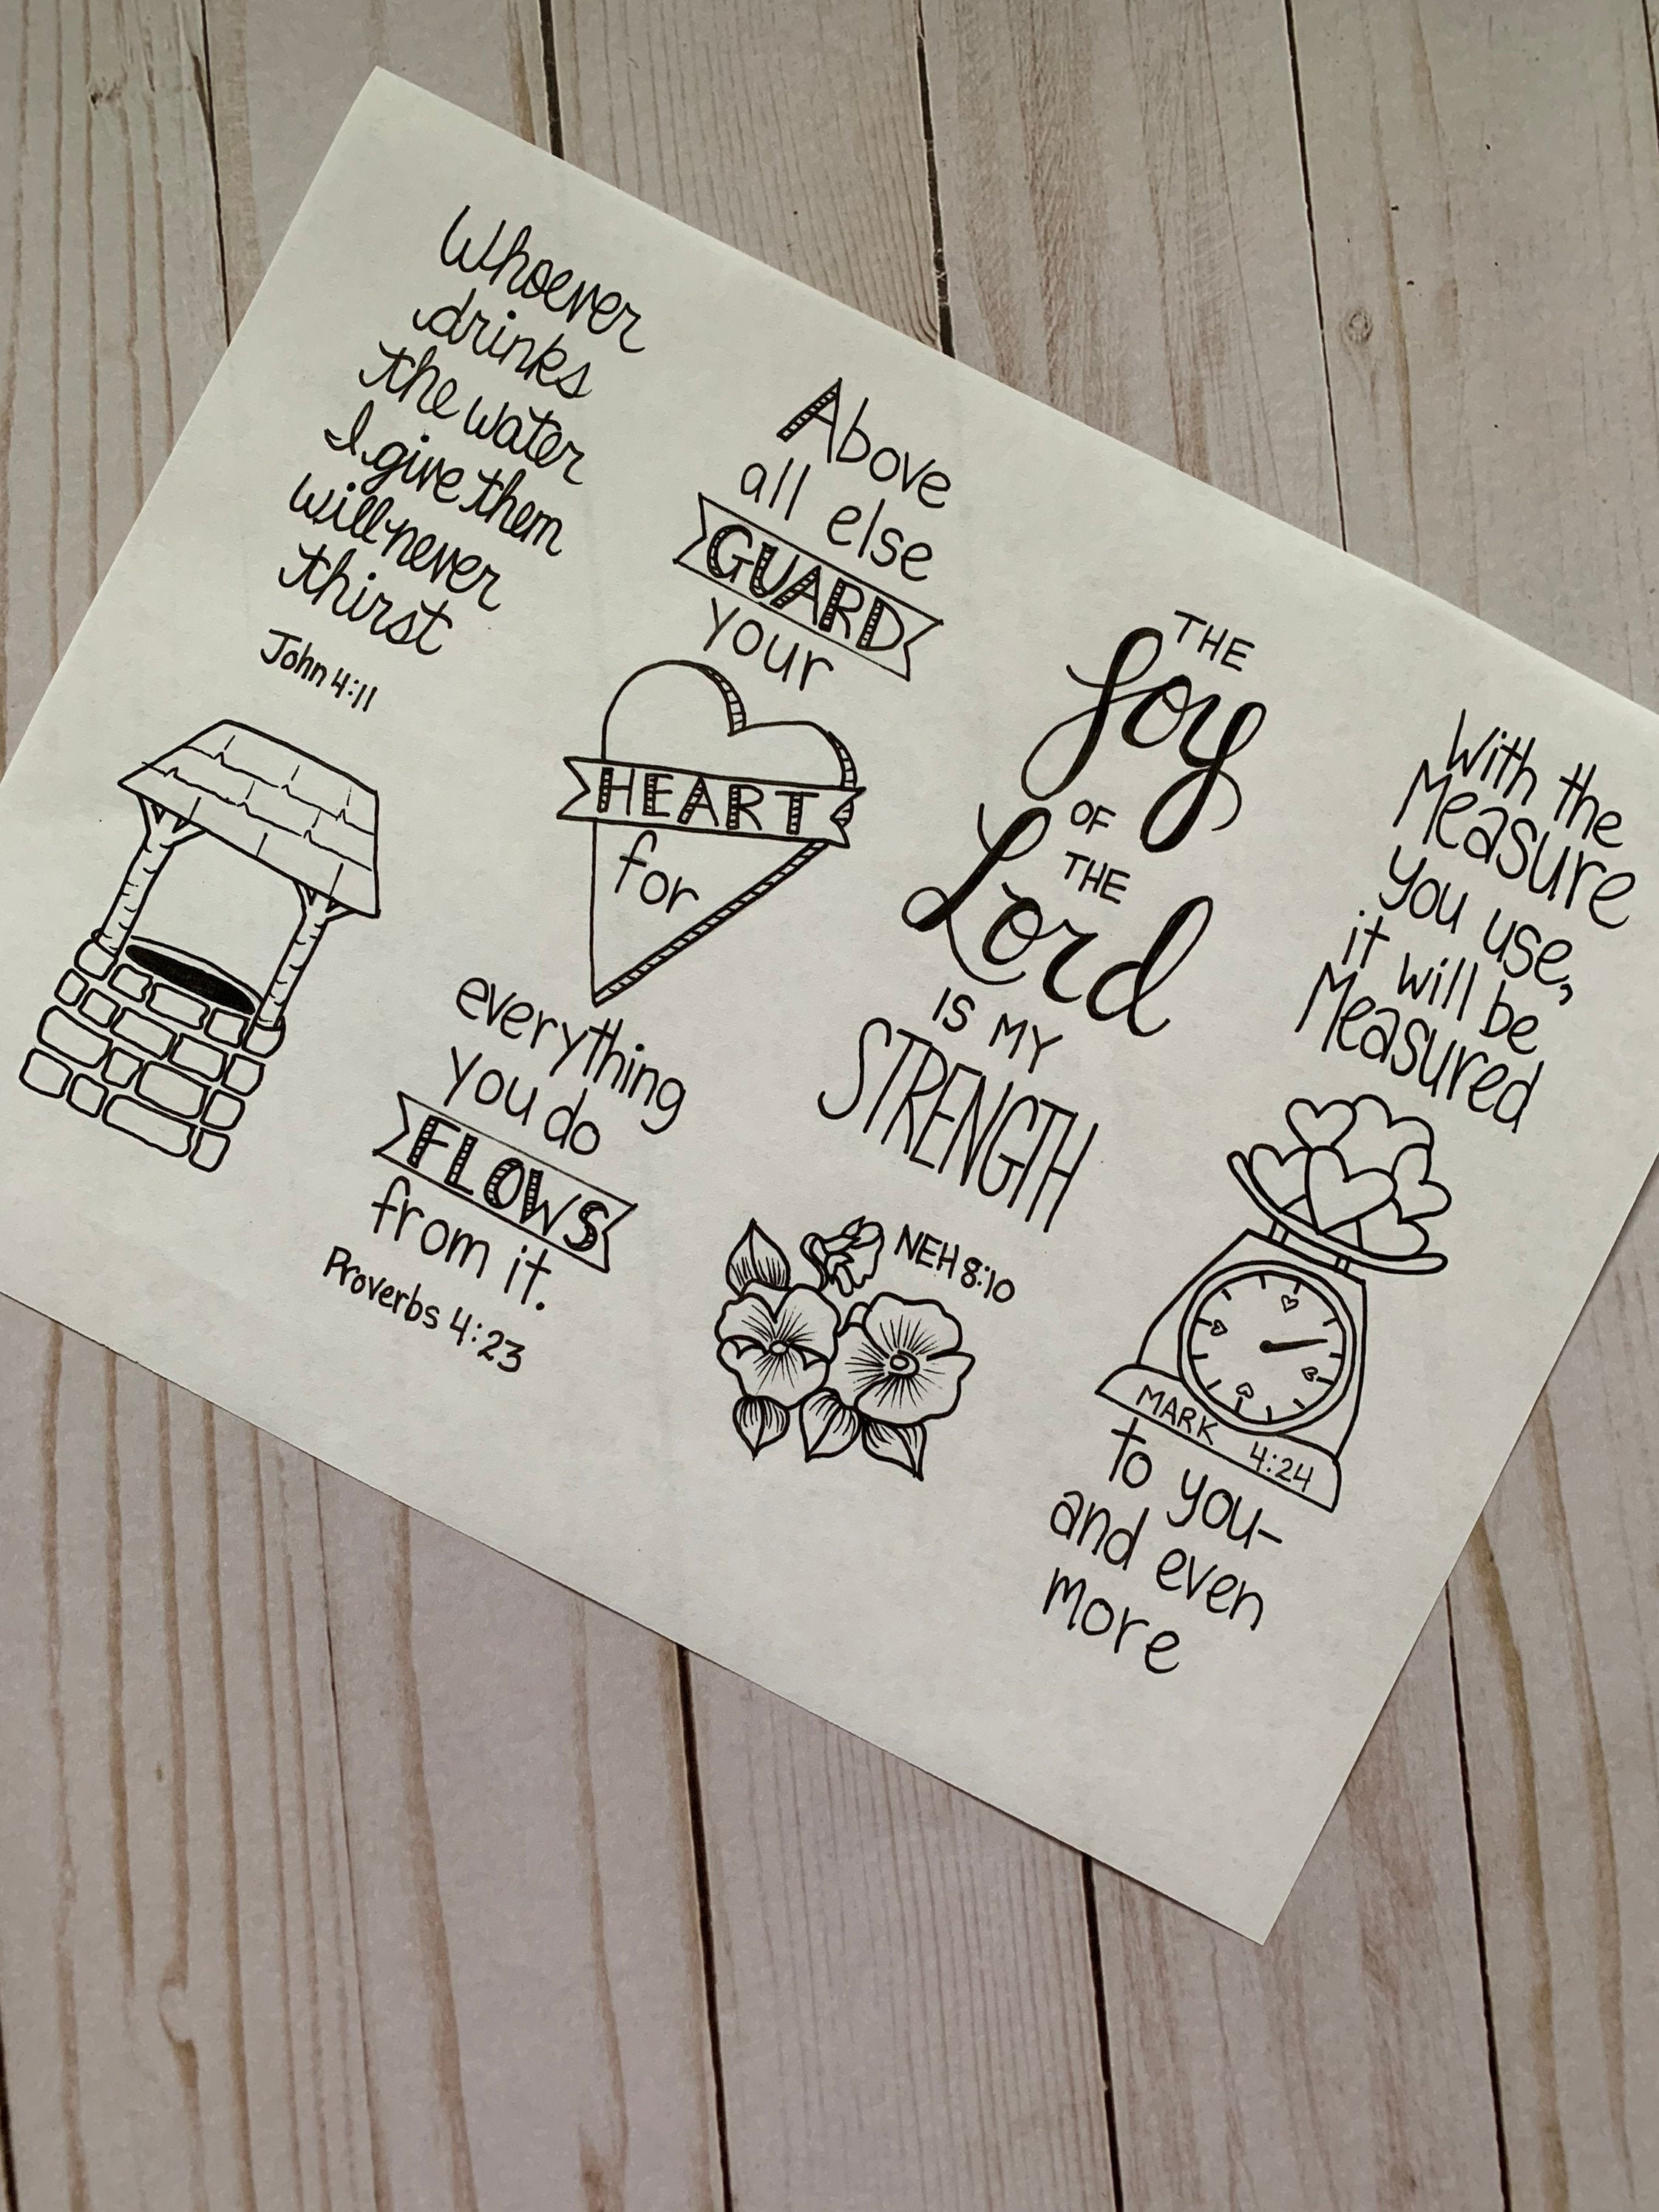 Whoever
drinks
the water
I give them
will never
thirst
John 4:11
Above
all else
GUARD
your
HEART
for
everything
you do
FLOWS
from it.
Proverbs 4:23
THE
Joy
OF
THE
Lord
IS MY
STRENGTH
NEH 8:10
With the
Measure
you use,
it will be
Measured
MARK 4:24
to you-
and even
more